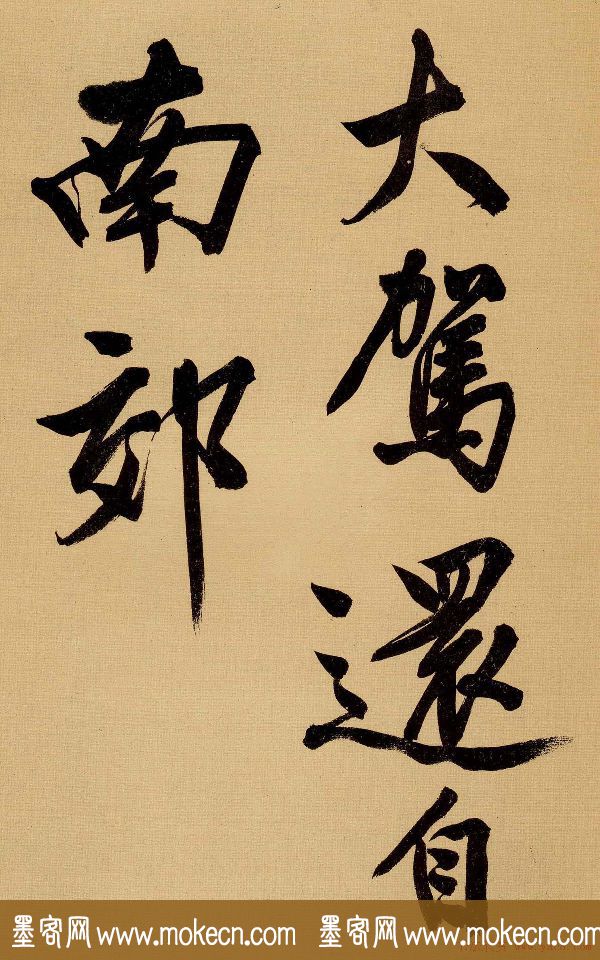 大駕還自
南郊
墨客网 www.mokecn.com 墨客网 www.mokecn.com